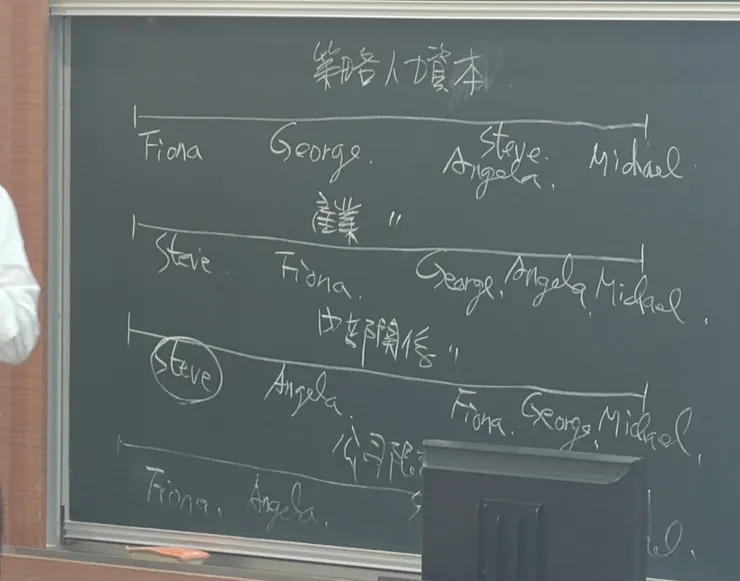 策略人力資本
Fiona George. Steve. Michael.
Angela.
產業 〃
Steve Fiona. George. Angela. Michael.
內部關係 〃
Steve Angela. Fiona. George. Michael.
公司
Fiona. Angela.